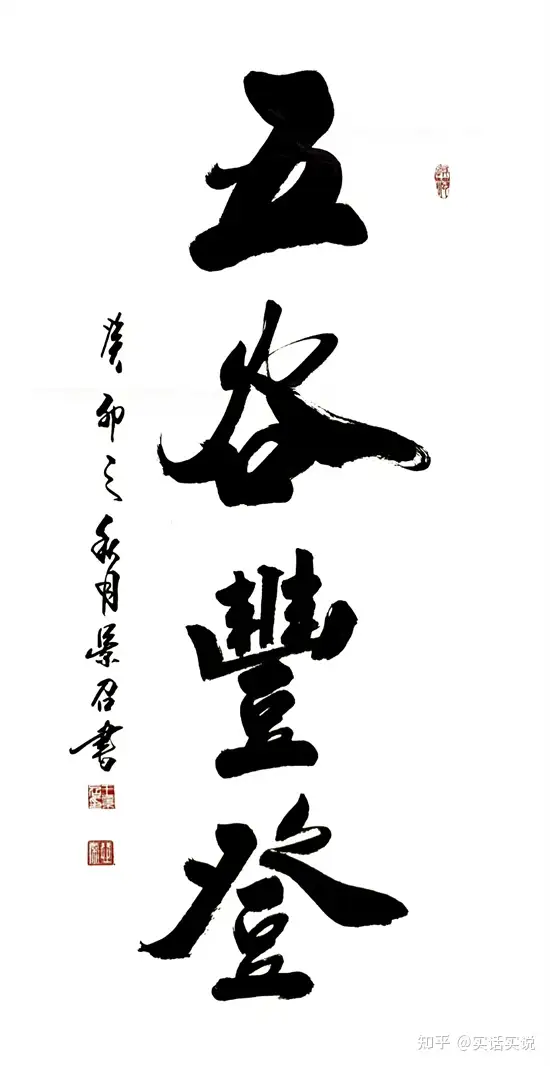 五谷豐登
癸卯之秋月景召書
知乎 @实话实说